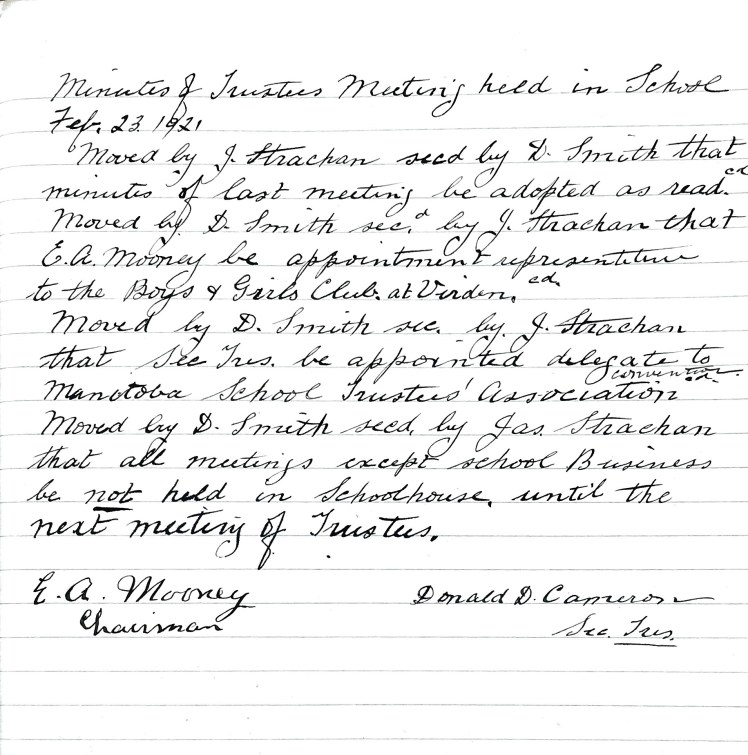 Minutes of Trustees Meeting held in School
Feb. 23. 1921
Moved by J. Strachan secd by D. Smith that
minutes of last meeting be adopted as read. cd
Moved by D. Smith sec.d by J. Strachan that
E.A. Mooney be appointment representitive
to the Boys & Girls Club. at Virden. cd.
Moved by D. Smith sec. by. J. Strachan
that Sec Tres. be appointed delegate to
Manotoba School Trustees' Association convention cd.
Moved by D. Smith secd. by Jas. Strachan
that all meetings except school Business
be not held in Schoolhouse. until the
next meeting of Trustees.
E. A. Mooney
Chairman
Donald D. Cameron
Sec. Tres.